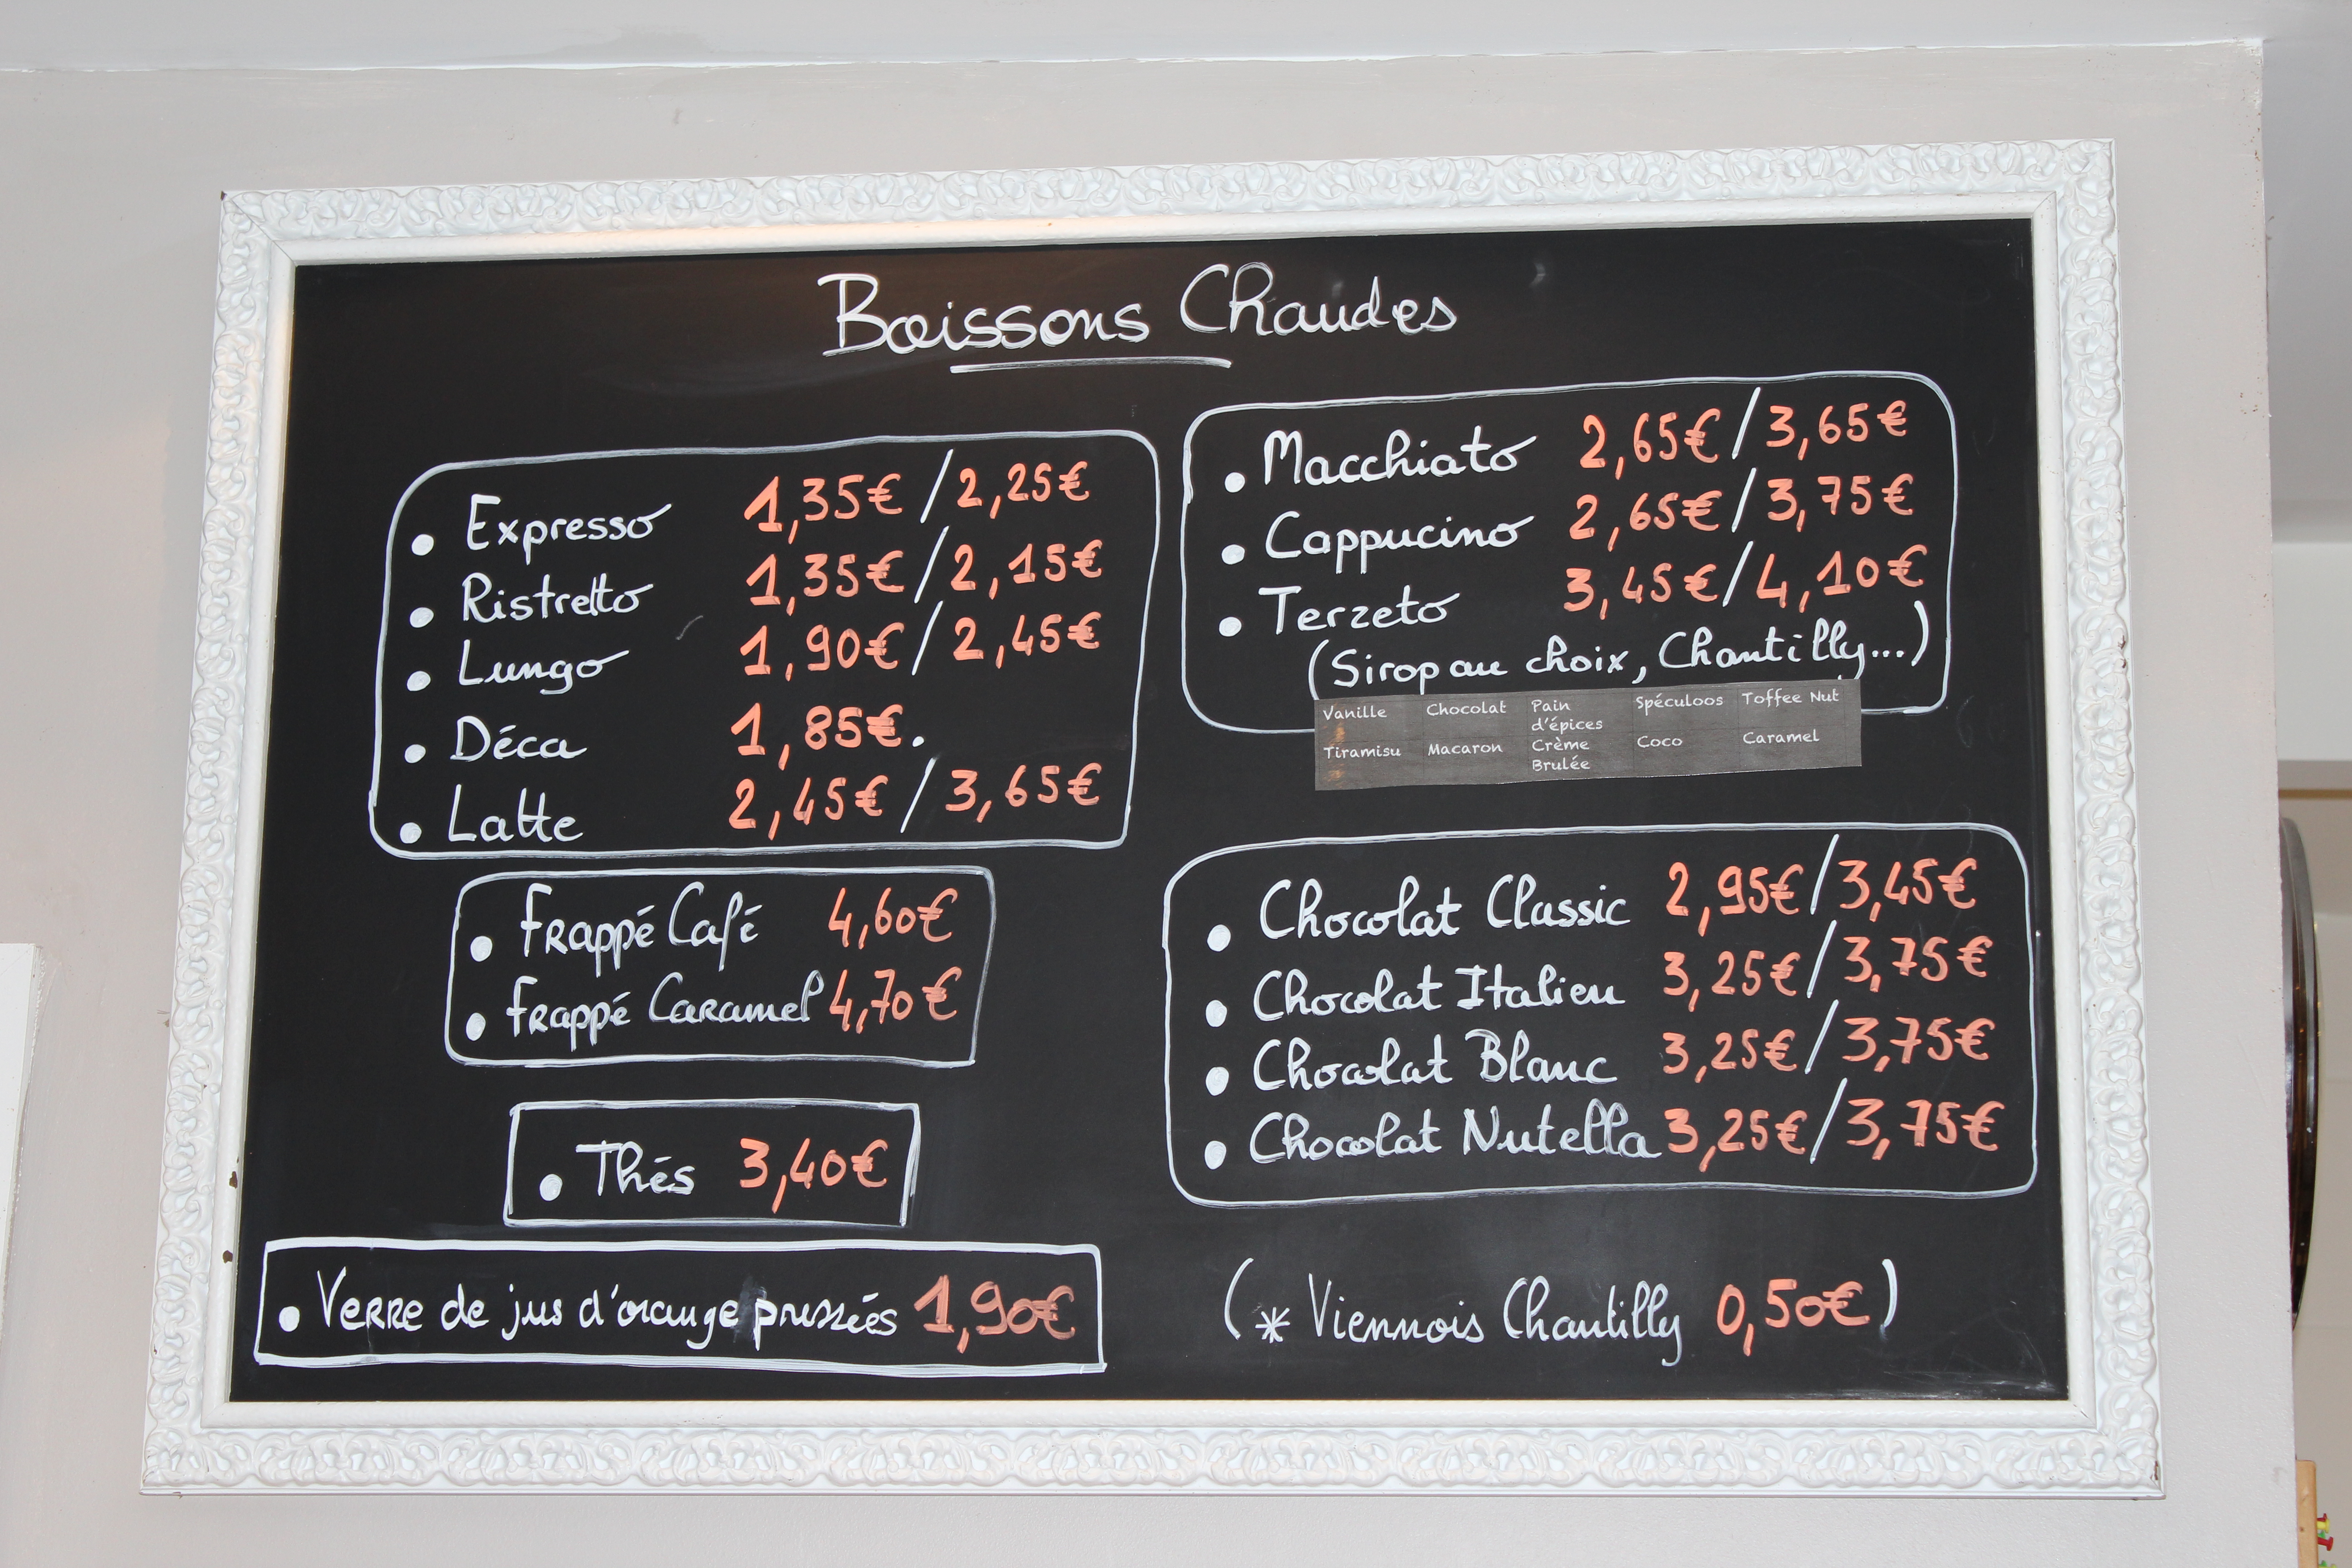 Boissons Chaudes
• Expresso 1,35€ / 2,25€
• Ristretto 1,35€ / 2,15€
• Lungo 1,90€ / 2,45€
• Déca 1,85€.
• Latte 2,45€ / 3,65€
• Frappé Café 4,60€
• Frappé Caramel 4,70€
• Thés 3,40€
• Verre de jus d'orange pressées 1,90€
• Macchiato 2,65€ / 3,65€
• Cappucino 2,65€ / 3,75€
• Terzeto 3,45€ / 4,10€
(Sirop au choix, Chantilly...)
Vanille Chocolat Pain d'épices Spéculoos Toffee Nut
Tiramisu Macaron Crème Brulée Coco Caramel
• Chocolat Classic 2,95€ / 3,45€
• Chocolat Italien 3,25€ / 3,75€
• Chocolat Blanc 3,25€ / 3,75€
• Chocolat Nutella 3,25€ / 3,75€
(* Viennois Chantilly 0,50€)